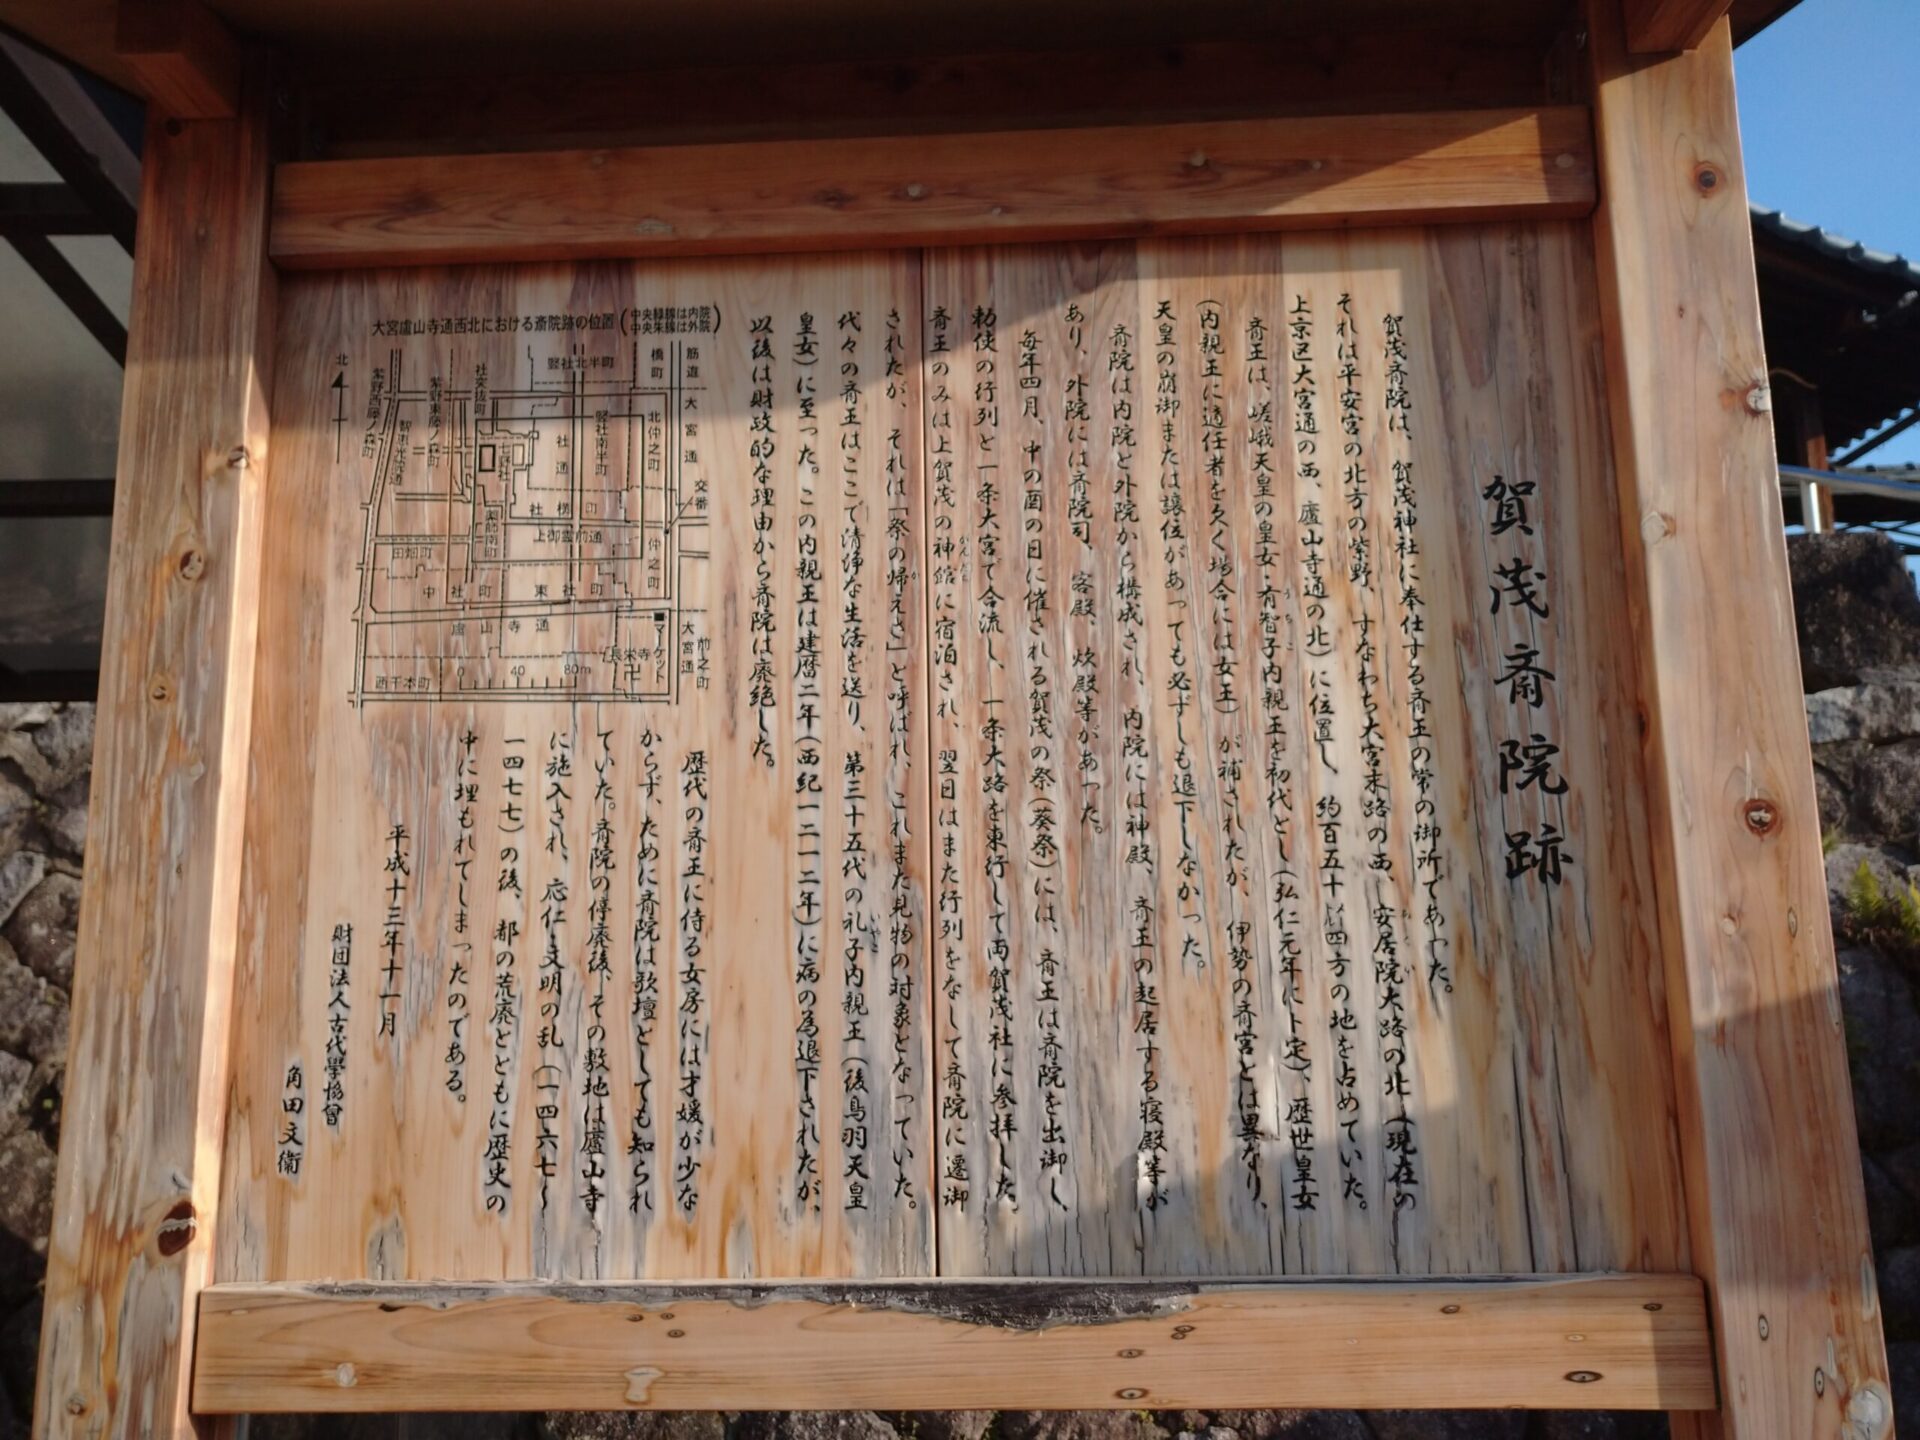 賀茂斎院跡
賀茂斎院は、賀茂神社に奉仕する斎王の常の御所であった。
それは平安宮の北方の紫野、すなわち大宮末路の西、安居院大路の北（現在の
上京区大宮通の西、廬山寺通の北）に位置し、約百五十㍍四方の地を占めていた。
斎王は、嵯峨天皇の皇女・有智子内親王を初代とし（弘仁元年に卜定）、歴世皇女
（内親王に適任者を欠く場合には女王）が補されたが、伊勢の斎宮とは異なり、
天皇の崩御または譲位があっても必ずしも退下しなかった。
斎院は内院と外院から構成され、内院には神殿、斎王の起居する寝殿等が
あり、外院には斎院司、客殿、炊殿等があった。
毎年四月、中の酉の日に催される賀茂の祭（葵祭）には、斎王は斎院を出御し、
勅使の行列と一条大宮で合流し、一条大路を東行して両賀茂社に参拝した。
斎王のみは上賀茂の神館に宿泊され、翌日はまた行列をなして斎院に還御
されたが、それは「祭の帰えさ」と呼ばれ、これまた見物の対象となっていた。
代々の斎王はここで清浄な生活を送り、第三十五代の礼子内親王（後鳥羽天皇
皇女）に至った。この内親王は建暦二年（西紀一二一二年）に病の為退下されたが、
以後は財政的な理由から斎院は廃絶した。
歴代の斎王に侍る女房には才媛が少な
からず、ために斎院は歌壇としても知られ
ていた。斎院の停廃後、その敷地は廬山寺
に施入され、応仁・文明の乱（一四六七～
一四七七）の後、都の荒廃とともに歴史の
中に埋もれてしまったのである。
平成十三年十一月
財団法人古代學協會
角田文衞
大宮盧山寺通西北における斎院跡の位置（中央緑線は内院 中央朱線は外院）
北
筋違
橋町
大宮通
交番
竪社北半町
竪社南半町
北仲之町
仲之町
社突抜町
紫野東藤ノ森町
紫野西藤ノ森町
智恵光院通
七野社
社通
社横町
上御霊前通
田畑町
中社町
東社町
盧山寺通
マーケット
大宮通
前之町
長栄寺
西千本町
0 40 80m